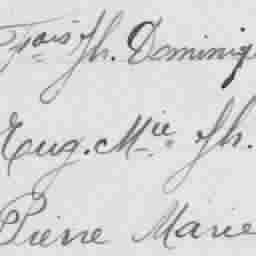 Fçois Jh. Dominiq
Eug. Mie Jh.
Pierre Marie